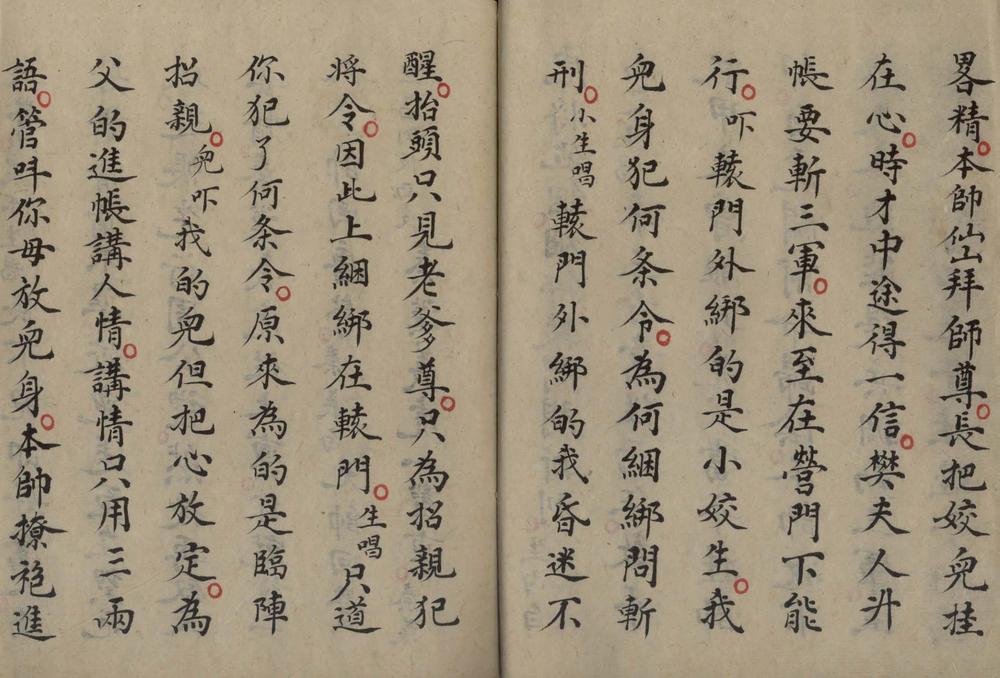 畧精。本帥仙山拜師尊。長把姣兒挂
在心。時才中途得一信。樊夫人升
帳要斬三軍。來至在營門下能
行。吓轅門外綁的是小姣生。我
兒身犯何条令。為何綑綁問斬
刑。小生唱轅門外綁的我昏迷不
醒。抬頭只見老爹尊。只為招親犯
将令。因此上綑綁在轅門。生唱只道
你犯了何条令。原來為的是臨陣
招親。兒吓我的兒但把心放定。為
父的進帳講人情。講情只用三兩
語。管叫你母放兒身。本帥撩袍進